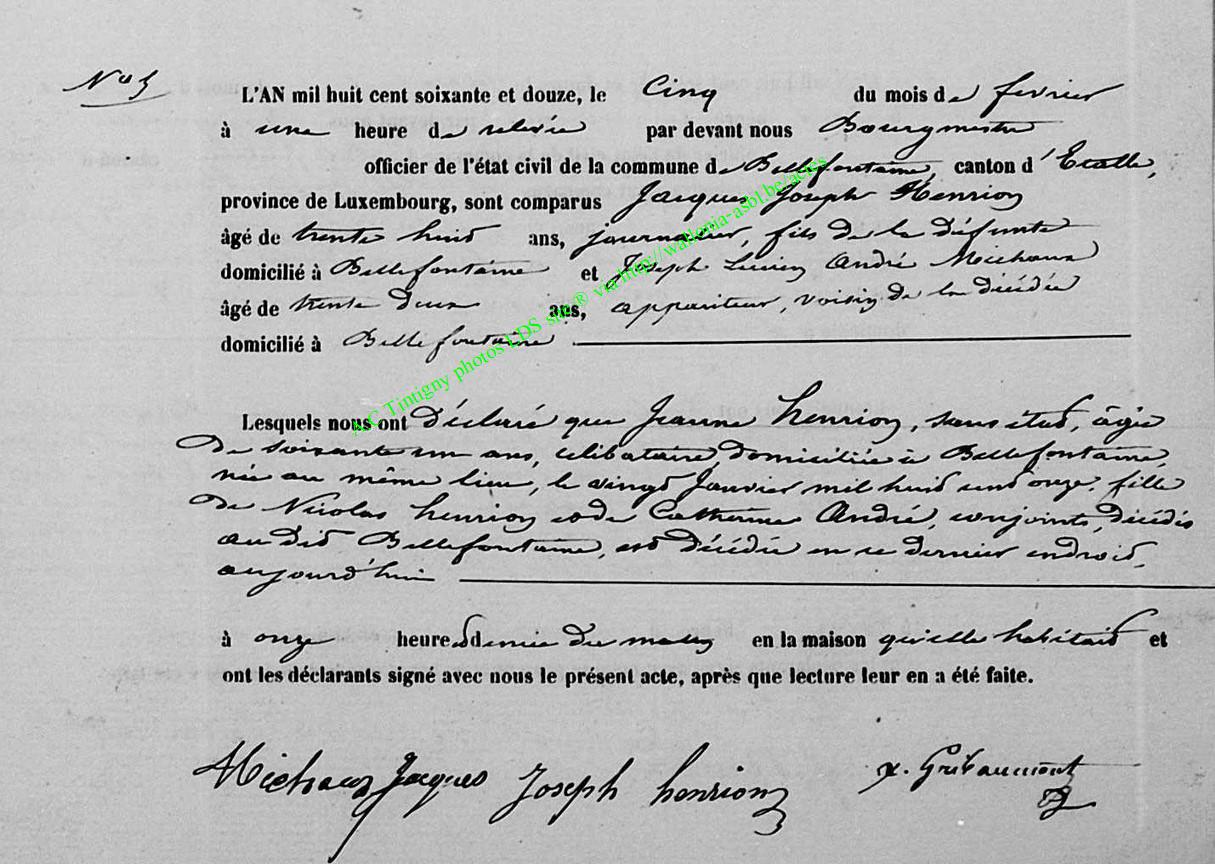 N° 5
L'AN mil huit cent soixante et douze, le Cinq du mois de fevrier
à une heure de relevée par devant nous Bourgmestre
officier de l'état civil de la commune de Bellefontaine, canton d'Etalle,
province de Luxembourg, sont comparus Jacques Joseph Henrion
âgé de trente huit ans, journalier, fils de la défunte
domicilié à Bellefontaine et Joseph Lucien André Michaux
âgé de trente deux ans, appariteur, voisin de la décédée
domicilié à Bellefontaine
Lesquels nous ont déclaré que Jeanne henrion, sans état, âgée
de soixante un ans, célibataire, domiciliée à Bellefontaine,
née au même lieu, le vingt Janvier mil huit cent onze, fille
de Nicolas henrion et de Catherine André, conjoints, décédés
au dit Bellefontaine, est décédée en ce dernier endroit,
aujourd'hui
à onze heures demie du matin en la maison qu'elle habitait et
ont les déclarants signé avec nous le présent acte, après que lecture leur en a été faite.
Michaux Jacques Joseph henrion x. Gribaumont
AC Tintigny photos LDS site® via http://wallonia-asbl.be/actes